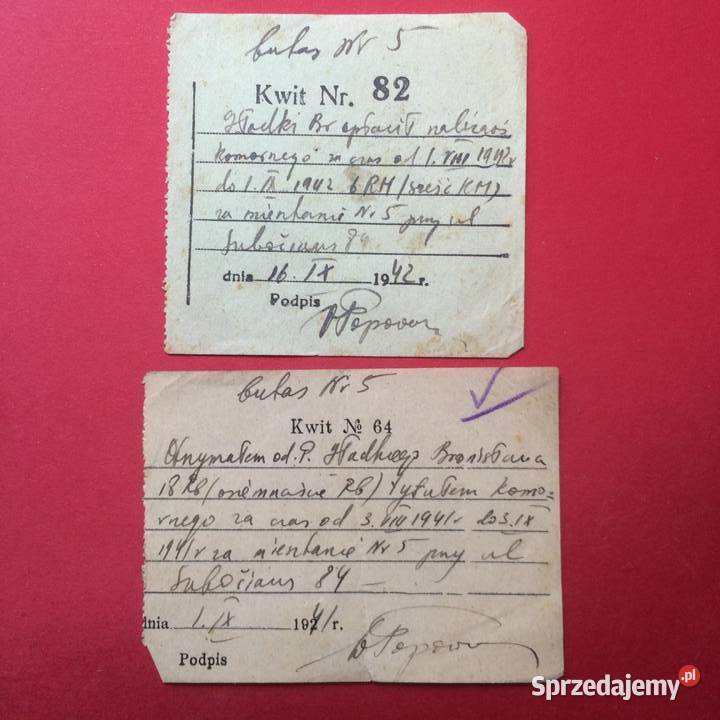 butas Nr 5
Kwit Nr. 82
Hładki Br opłacił należność
komornego za czas od 1. VIII 1942 r
do 1. IX 1942 6 RM (sześć RM)
za mieszkanie Nr 5 przy ul
Subočiaus 84
dnia 16. IX 1942 r.
Podpis
butas Nr 5
Kwit № 64
Otrzymałem od P. Hładkiego Bronisława
18 Rb (osiemnaście Rb) tytułem komor-
nego za czas od 3. VIII 1941 r do 3. IX
1941 r za mieszkanie Nr 5 przy ul
Subočiaus 84 —
dnia 1. IX 1941 r.
Podpis
Sprzedajemy.pl